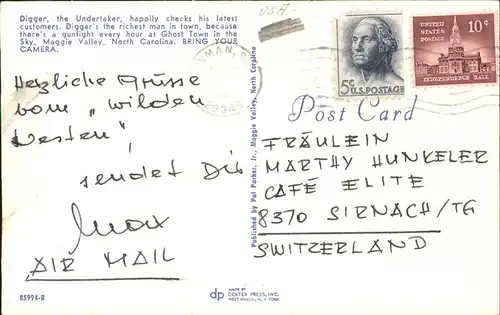 Digger, the Undertaker, happily checks his latest
customers. Digger's the richest man in town, because
there's a gunfight every hour at Ghost Town in
the Sky, Maggie Valley, North Carolina. BRING YOUR
CAMERA.
USA
Herzliche Grüsse
vom "wilden
Westen",
sendet Dir
Max
AIR MAIL
85994-B
Published by Pal Parker, Jr., Maggie Valley, North Carolina
dp
MADE BY
DEXTER PRESS, INC.
WEST NYACK, N. Y.
5¢ U.S. POSTAGE
UNITED
STATES
POSTAGE
10¢
INDEPENDENCE HALL
Post Card
FRÄULEIN
MARTHY HUNKELER
CAFÉ ELITE
8370 SIRNACH/TG
SWITZERLAND